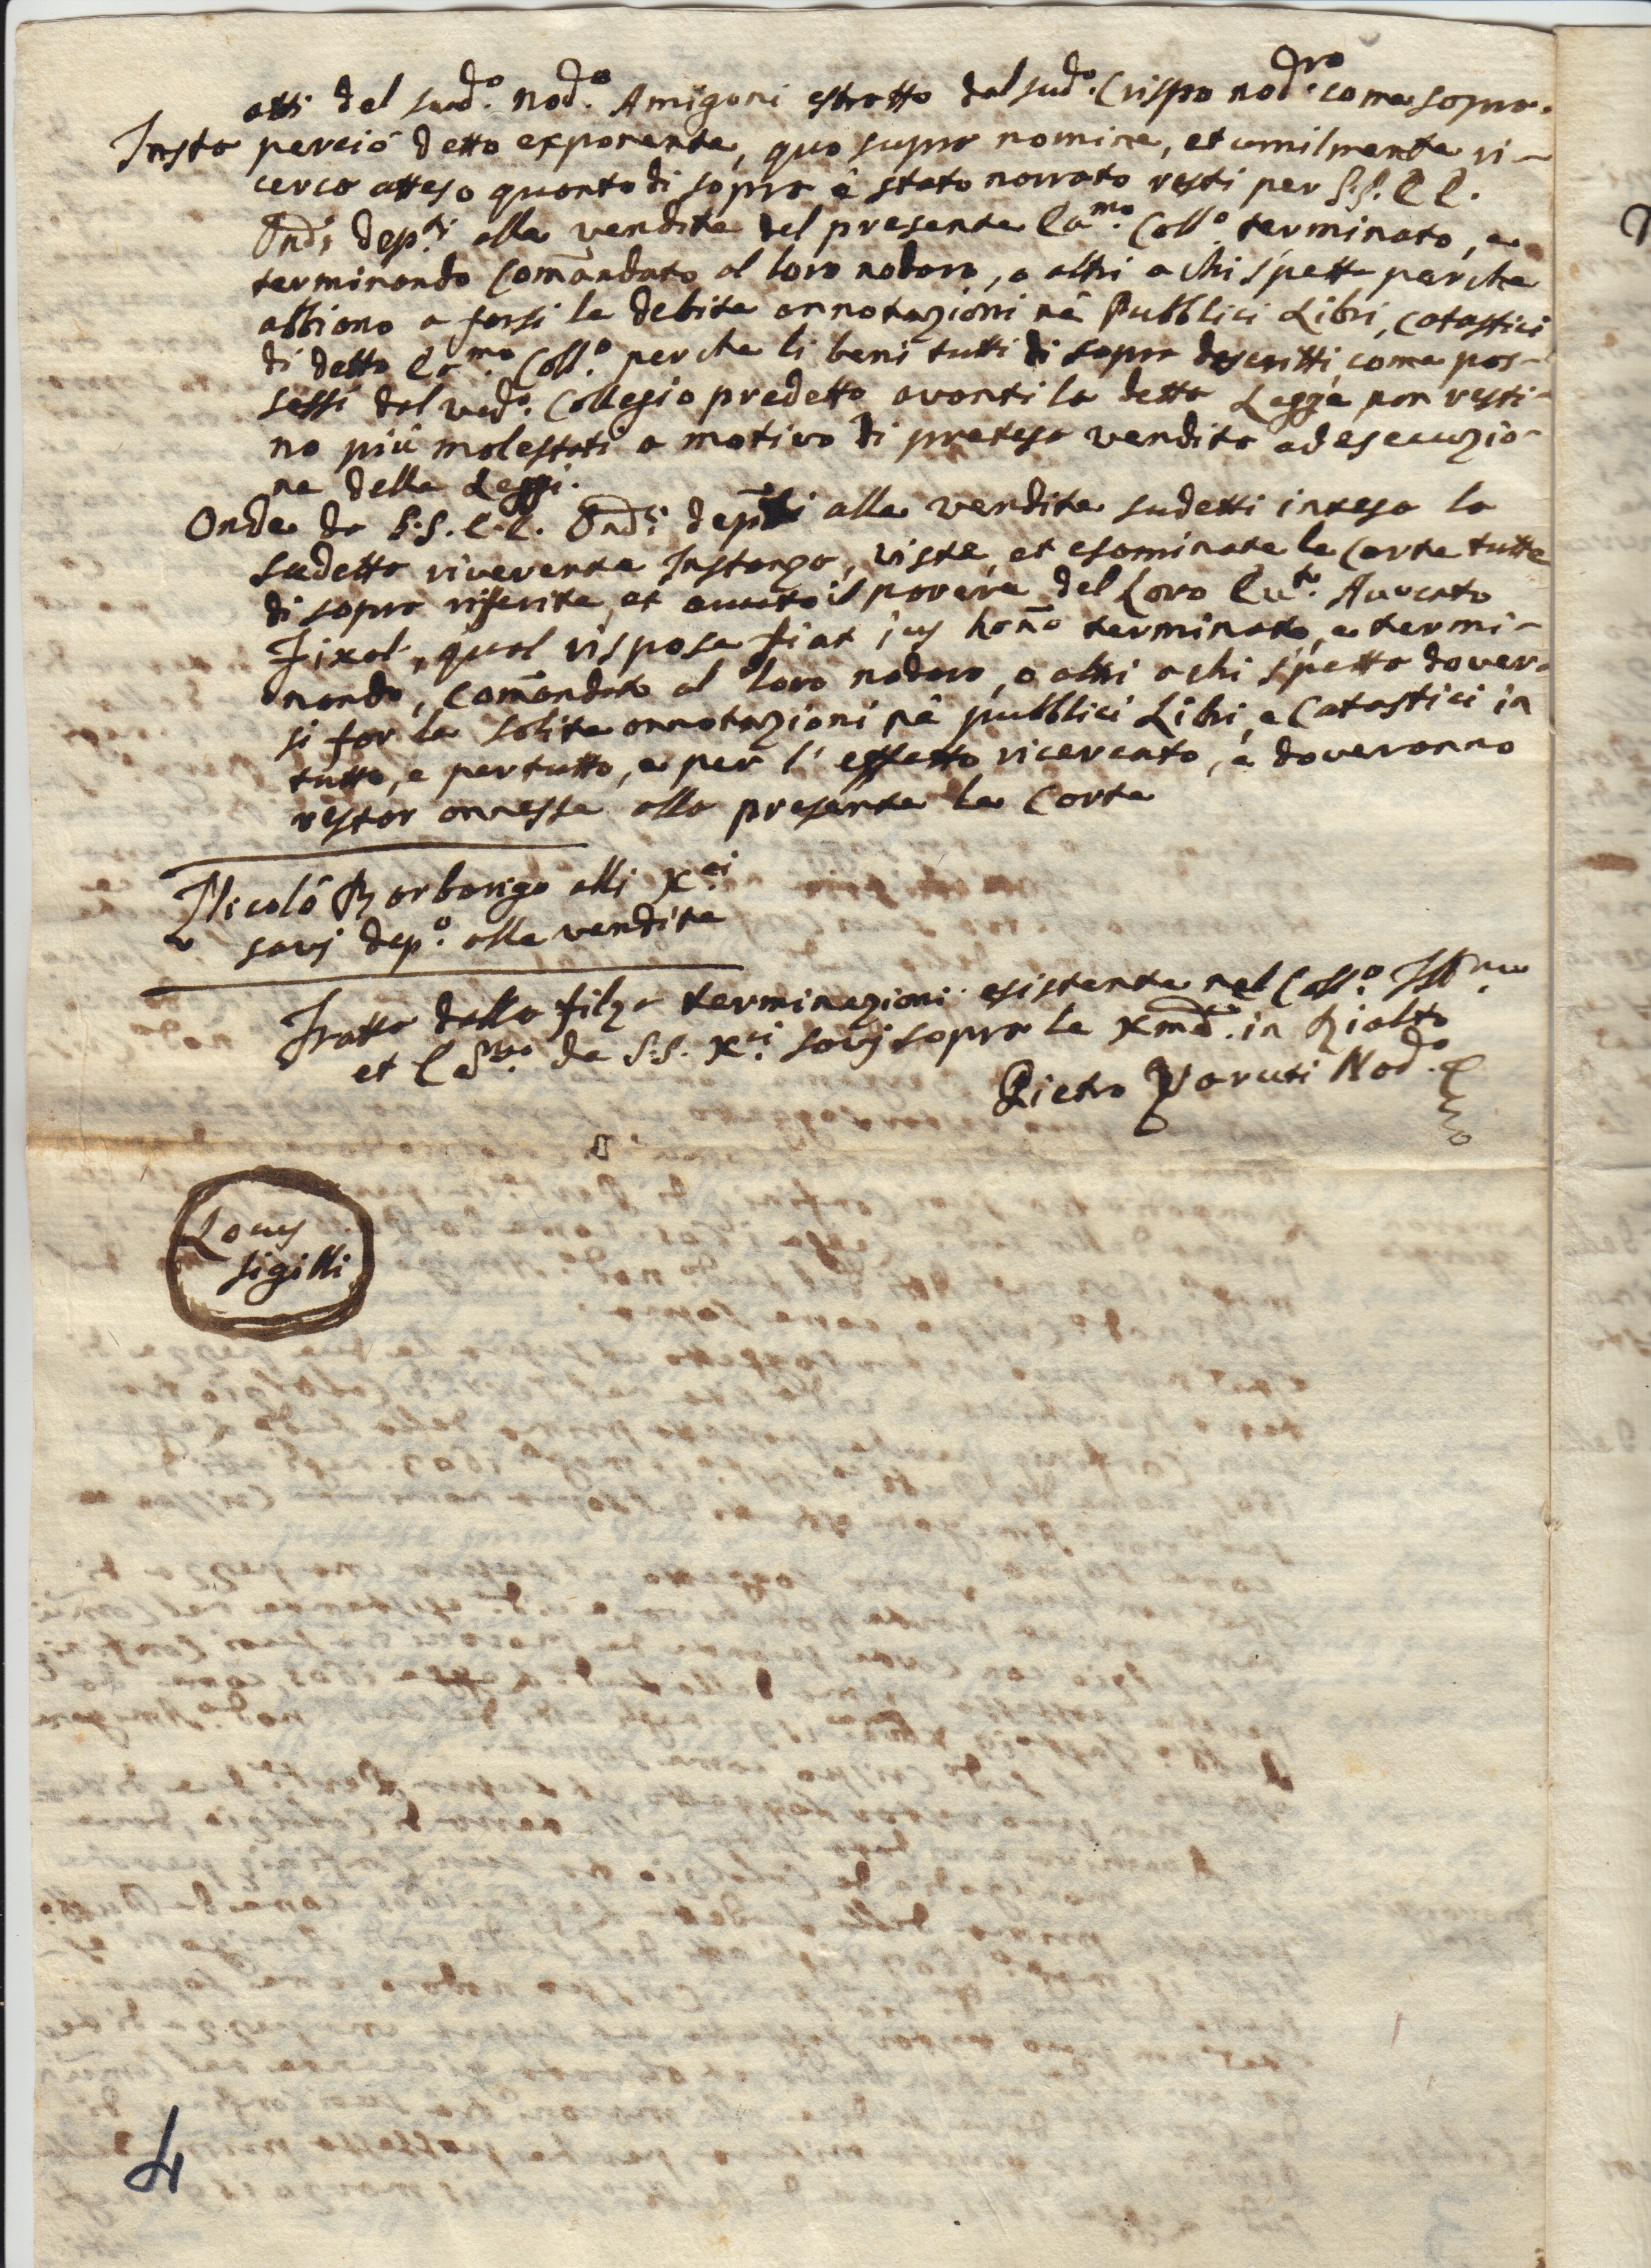 atti del sud.o nod.o Amigoni estratto dal sud.o Crispo nod.ro come sopra.
Insta perciò detto exponente, quo supra nomine, et umilmente ri-
cerca atteso quanto di sopra è stato narrato resti per S.S. E E.
dep.ti alla vendita del presente Ec.mo Coll.o terminato, e
terminando Comandato al loro nodaro, o altri a chi s'petta perche
abbiano a farsi le debite annotazioni nè Pubblici Libri, Catastici
di detto Ec.mo Coll.o perche li beni tutti di sopra descritti, come pos-
sessi dal ved.o Collegio predetto avanti la detta Legge non resti-
no più molestati a motivo di pretesa vendita ad esecuzio-
ne delle Leggi.
Onde da S.S. E.E. dep.ti alla vendita sudetti intesa la
sudetta riverente Instanza, viste, et esaminate le Carte tutte
di sopra riferite, et auuto il parere del Loro Auuocato
Fixal, qual rispose fiat jus hano terminato, e termi-
nando, Comandato al loro nodaro, o altri a chi s'petta dover-
si far le solite annotazioni nè pubblici Libri, e Catastici in
tutto, e per tutto, e per l' effetto ricercato, e doveranno
restar annesse alla presente le Carte
Nicolò Barbarigo alli X.ci
savj dep.o alla vendita
Tratta dalla filza terminazioni esistente nel Coll.o
et de S.S. X.ci savj sopra le Xme in Rialto
Pietro Varuti Nod.o
Locus
sigilli
4